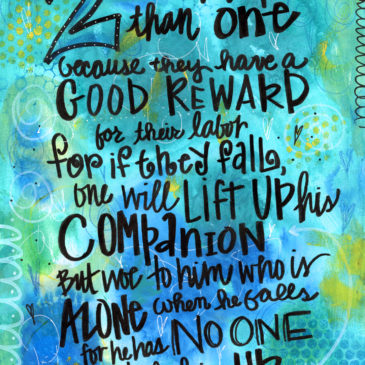 2
than one
because they have a
GOOD REWARD
for their labor
for if they fall,
one will LIFT UP his
COMPANION
But woe to him who is
ALONE when he falls
for he has NO ONE
UP